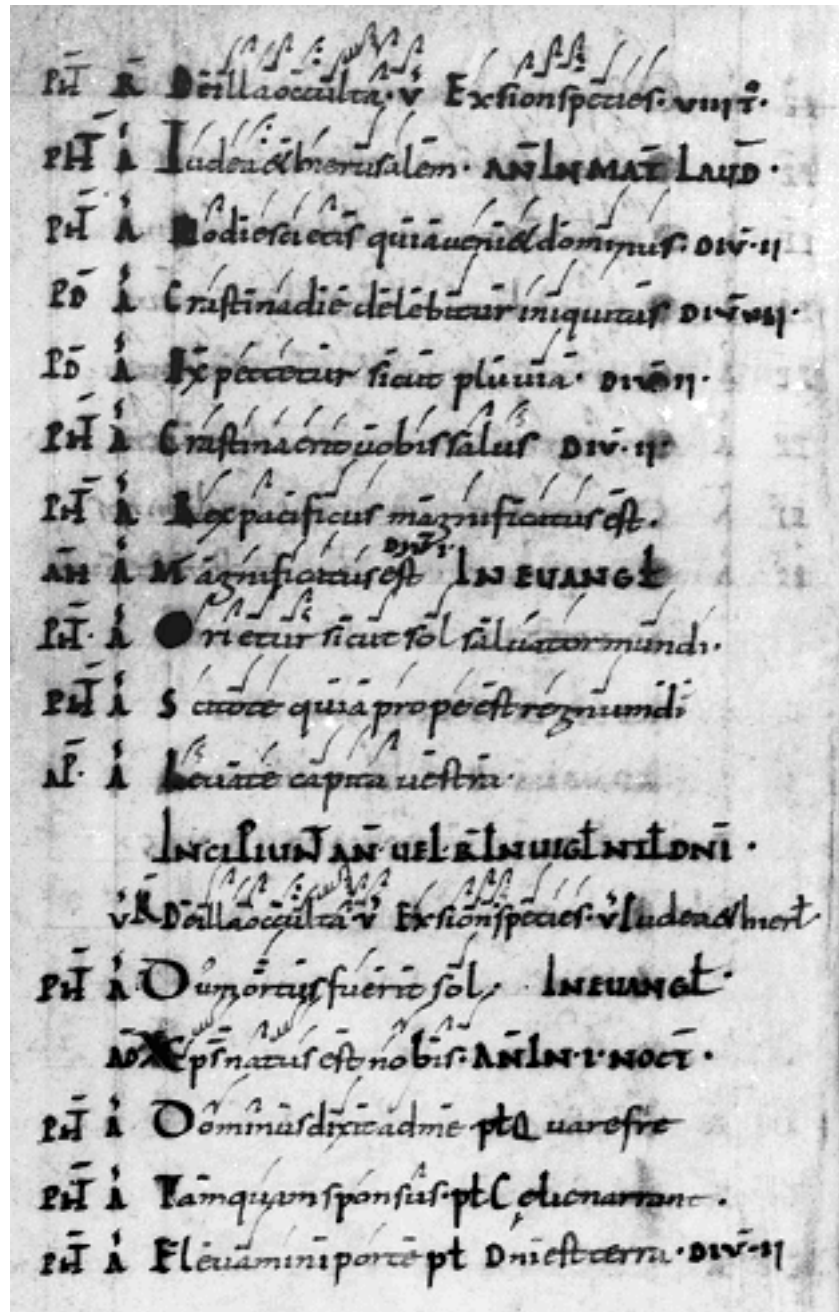 PH̄ R̄ De illa occulta · V̇ Ex sion species · VIIII T̊ ·
PH̄ A Iudea & hierusalem · AN̄ IN MAT̄ LAUD̄ ·
PH̄ A Hodie scietis quia veni& dominus · DIV̄ · II
PD̄ A Crastina die delebitur iniquitas DIV̄ VII ·
PD̄ A Expectetur sicut pluuia · DIV̄ II ·
PH̄ A Crastina erit uobis salus DIV̄ · II ·
PH̄ A Rex pacificus magnificatus est ·
DIV̄ I ·
AH̄ A Magnificatus est IN EVANGŁ
PH̄ · A Orietur sicut sol saluator mundi ·
PH̄ A Scitote quia prope est regnum di
AP̄ · A Leuate capita uestra ·
INCIPIUNT AN̄ UEL R̄ IN UIGŁ NAŁ DNĪ ·
V̇ R̄ De illa occulta V̇ Ex sion species · V̇ Iudea & hierł
PH̄ A Dum ortus fuerit sol · IN EUANGŁ ·
AD̄ Xps natus est nobis · AN̄ IN · I · NOCT̄ ·
PH̄ A Dominus dixit ad me pł Quare fre
PH̄ A Tamquam sponsus · pł Celi enarrant ·
PH̄ A Eleuamini porte pł Dni est terra · DIV̄ · II